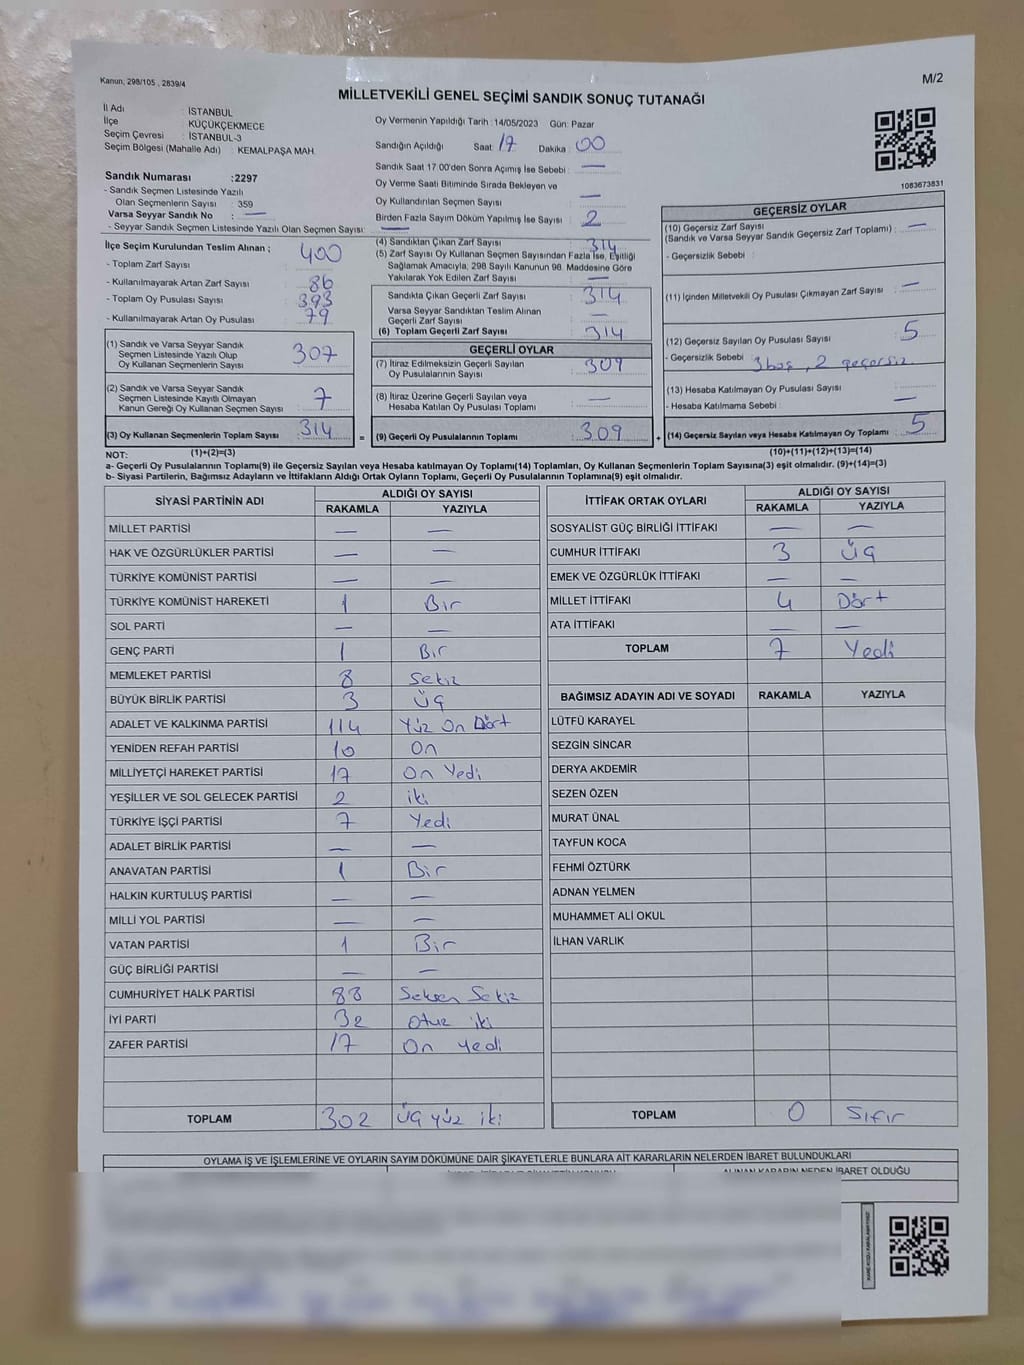 Kanun, 298/105 , 2839/4
M/2
MİLLETVEKİLİ GENEL SEÇİMİ SANDIK SONUÇ TUTANAĞI
İl Adı : İSTANBUL
İlçe : KÜÇÜKÇEKMECE
Seçim Çevresi : İSTANBUL-3
Seçim Bölgesi (Mahalle Adı) : KEMALPAŞA MAH.
Sandık Numarası :2297
- Sandık Seçmen Listesinde Yazılı
Olan Seçmenlerin Sayısı : 359
Varsa Seyyar Sandık No : —
- Seyyar Sandık Seçmen Listesinde Yazılı Olan Seçmen Sayısı: —
Oy Vermenin Yapıldığı Tarih :14/05/2023 Gün: Pazar
Sandığın Açıldığı Saat : 17 Dakika : 00
Sandık Saat 17:00'den Sonra Açımış İse Sebebi : —
Oy Verme Saati Bitiminde Sırada Bekleyen ve
Oy Kullandırılan Seçmen Sayısı : —
Birden Fazla Sayım Döküm Yapılmış İse Sayısı : 2
1083673831
İlçe Seçim Kurulundan Teslim Alınan ;
- Toplam Zarf Sayısı : 400
- Kullanılmayarak Artan Zarf Sayısı : 86
- Toplam Oy Pusulası Sayısı : 393
- Kullanılmayarak Artan Oy Pusulası : 79
(1) Sandık ve Varsa Seyyar Sandık
Seçmen Listesinde Yazılı Olup
Oy Kullanan Seçmenlerin Sayısı : 307
(2) Sandık ve Varsa Seyyar Sandık
Seçmen Listesinde Kayıtlı Olmayan
Kanun Gereği Oy Kullanan Seçmen Sayısı : 7
(3) Oy Kullanan Seçmenlerin Toplam Sayısı : 314
(4) Sandıktan Çıkan Zarf Sayısı : 314
(5) Zarf Sayısı Oy Kullanan Seçmen Sayısından Fazla İse, Eşitliği
Sağlamak Amacıyla, 298 Sayılı Kanunun 98. Maddesine Göre
Yakılarak Yok Edilen Zarf Sayısı : —
Sandıkta Çıkan Geçerli Zarf Sayısı : 314
Varsa Seyyar Sandıktan Teslim Alınan
Geçerli Zarf Sayısı : —
(6) Toplam Geçerli Zarf Sayısı : 314
GEÇERLİ OYLAR
(7) İtiraz Edilmeksizin Geçerli Sayılan
Oy Pusulalarının Sayısı : 309
(8) İtiraz Üzerine Geçerli Sayılan veya
Hesaba Katılan Oy Pusulası Toplamı : —
= (9) Geçerli Oy Pusulalarının Toplamı : 309
GEÇERSİZ OYLAR
(10) Geçersiz Zarf Sayısı
(Sandık ve Varsa Seyyar Sandık Geçersiz Zarf Toplamı) : —
- Geçersizlik Sebebi :
(11) İçinden Milletvekili Oy Pusulası Çıkmayan Zarf Sayısı : —
(12) Geçersiz Sayılan Oy Pusulası Sayısı : 5
- Geçersizlik Sebebi : 3 boş, 2 geçersiz.
(13) Hesaba Katılmayan Oy Pusulası Sayısı :
- Hesaba Katılmama Sebebi : —
+ (14) Geçersiz Sayılan veya Hesaba Katılmayan Oy Toplamı : 5
NOT: (1)+(2)=(3) (10)+(11)+(12)+(13)=(14)
a- Geçerli Oy Pusulalarının Toplamı(9) ile Geçersiz Sayılan veya Hesaba katılmayan Oy Toplamı(14) Toplamları, Oy Kullanan Seçmenlerin Toplam Sayısına(3) eşit olmalıdır. (9)+(14)=(3)
b- Siyasi Partilerin, Bağımsız Adayların ve İttifakların Aldığı Ortak Oyların Toplamı, Geçerli Oy Pusulalarının Toplamına(9) eşit olmalıdır.
SİYASİ PARTİNİN ADI ALDIĞI OY SAYISI
RAKAMLA YAZIYLA
MİLLET PARTİSİ — —
HAK VE ÖZGÜRLÜKLER PARTİSİ — —
TÜRKİYE KOMÜNİST PARTİSİ — —
TÜRKİYE KOMÜNİST HAREKETİ 1 Bir
SOL PARTİ — —
GENÇ PARTİ 1 Bir
MEMLEKET PARTİSİ 8 Sekiz
BÜYÜK BİRLİK PARTİSİ 3 Üç
ADALET VE KALKINMA PARTİSİ 114 Yüz On Dört
YENİDEN REFAH PARTİSİ 10 On
MİLLİYETÇİ HAREKET PARTİSİ 17 On Yedi
YEŞİLLER VE SOL GELECEK PARTİSİ 2 iki
TÜRKİYE İŞÇİ PARTİSİ 7 Yedi
ADALET BİRLİK PARTİSİ — —
ANAVATAN PARTİSİ 1 Bir
HALKIN KURTULUŞ PARTİSİ — —
MİLLİ YOL PARTİSİ — —
VATAN PARTİSİ 1 Bir
GÜÇ BİRLİĞİ PARTİSİ — —
CUMHURİYET HALK PARTİSİ 88 Seksen Sekiz
İYİ PARTİ 32 Otuz iki
ZAFER PARTİSİ 17 On yedi
TOPLAM 302 Üç yüz iki
İTTİFAK ORTAK OYLARI ALDIĞI OY SAYISI
RAKAMLA YAZIYLA
SOSYALİST GÜÇ BİRLİĞİ İTTİFAKI — —
CUMHUR İTTİFAKI 3 Üç
EMEK VE ÖZGÜRLÜK İTTİFAKI — —
MİLLET İTTİFAKI 4 Dört
ATA İTTİFAKI — —
TOPLAM 7 Yedi
BAĞIMSIZ ADAYIN ADI VE SOYADI RAKAMLA YAZIYLA
LÜTFÜ KARAYEL
SEZGİN SİNCAR
DERYA AKDEMİR
SEZEN ÖZEN
MURAT ÜNAL
TAYFUN KOCA
FEHMİ ÖZTÜRK
ADNAN YELMEN
MUHAMMET ALİ OKUL
İLHAN VARLIK
TOPLAM 0 Sıfır
OYLAMA İŞ VE İŞLEMLERİNE VE OYLARIN SAYIM DÖKÜMÜNE DAİR ŞİKAYETLERLE BUNLARA AİT KARARLARIN NELERDEN İBARET BULUNDUKLARI
ALINAN KARARIN NEDEN İBARET OLDUĞU